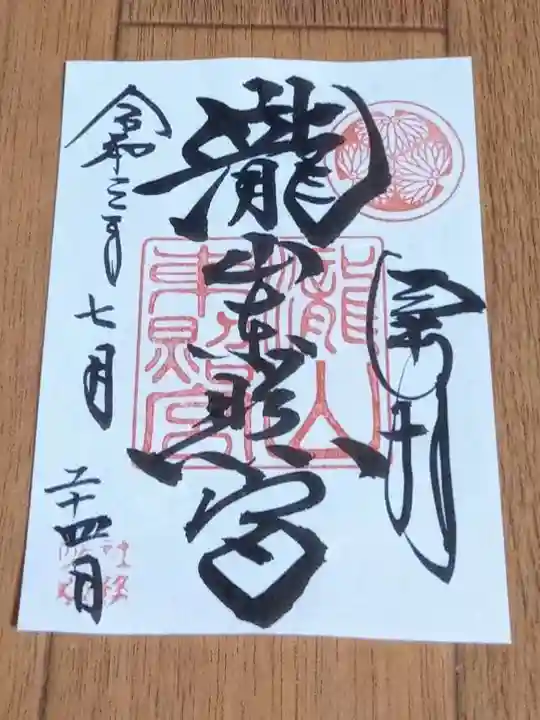 奉拝
瀧山東照宮
瀧山東照宮
令和三年
七月
二十四日